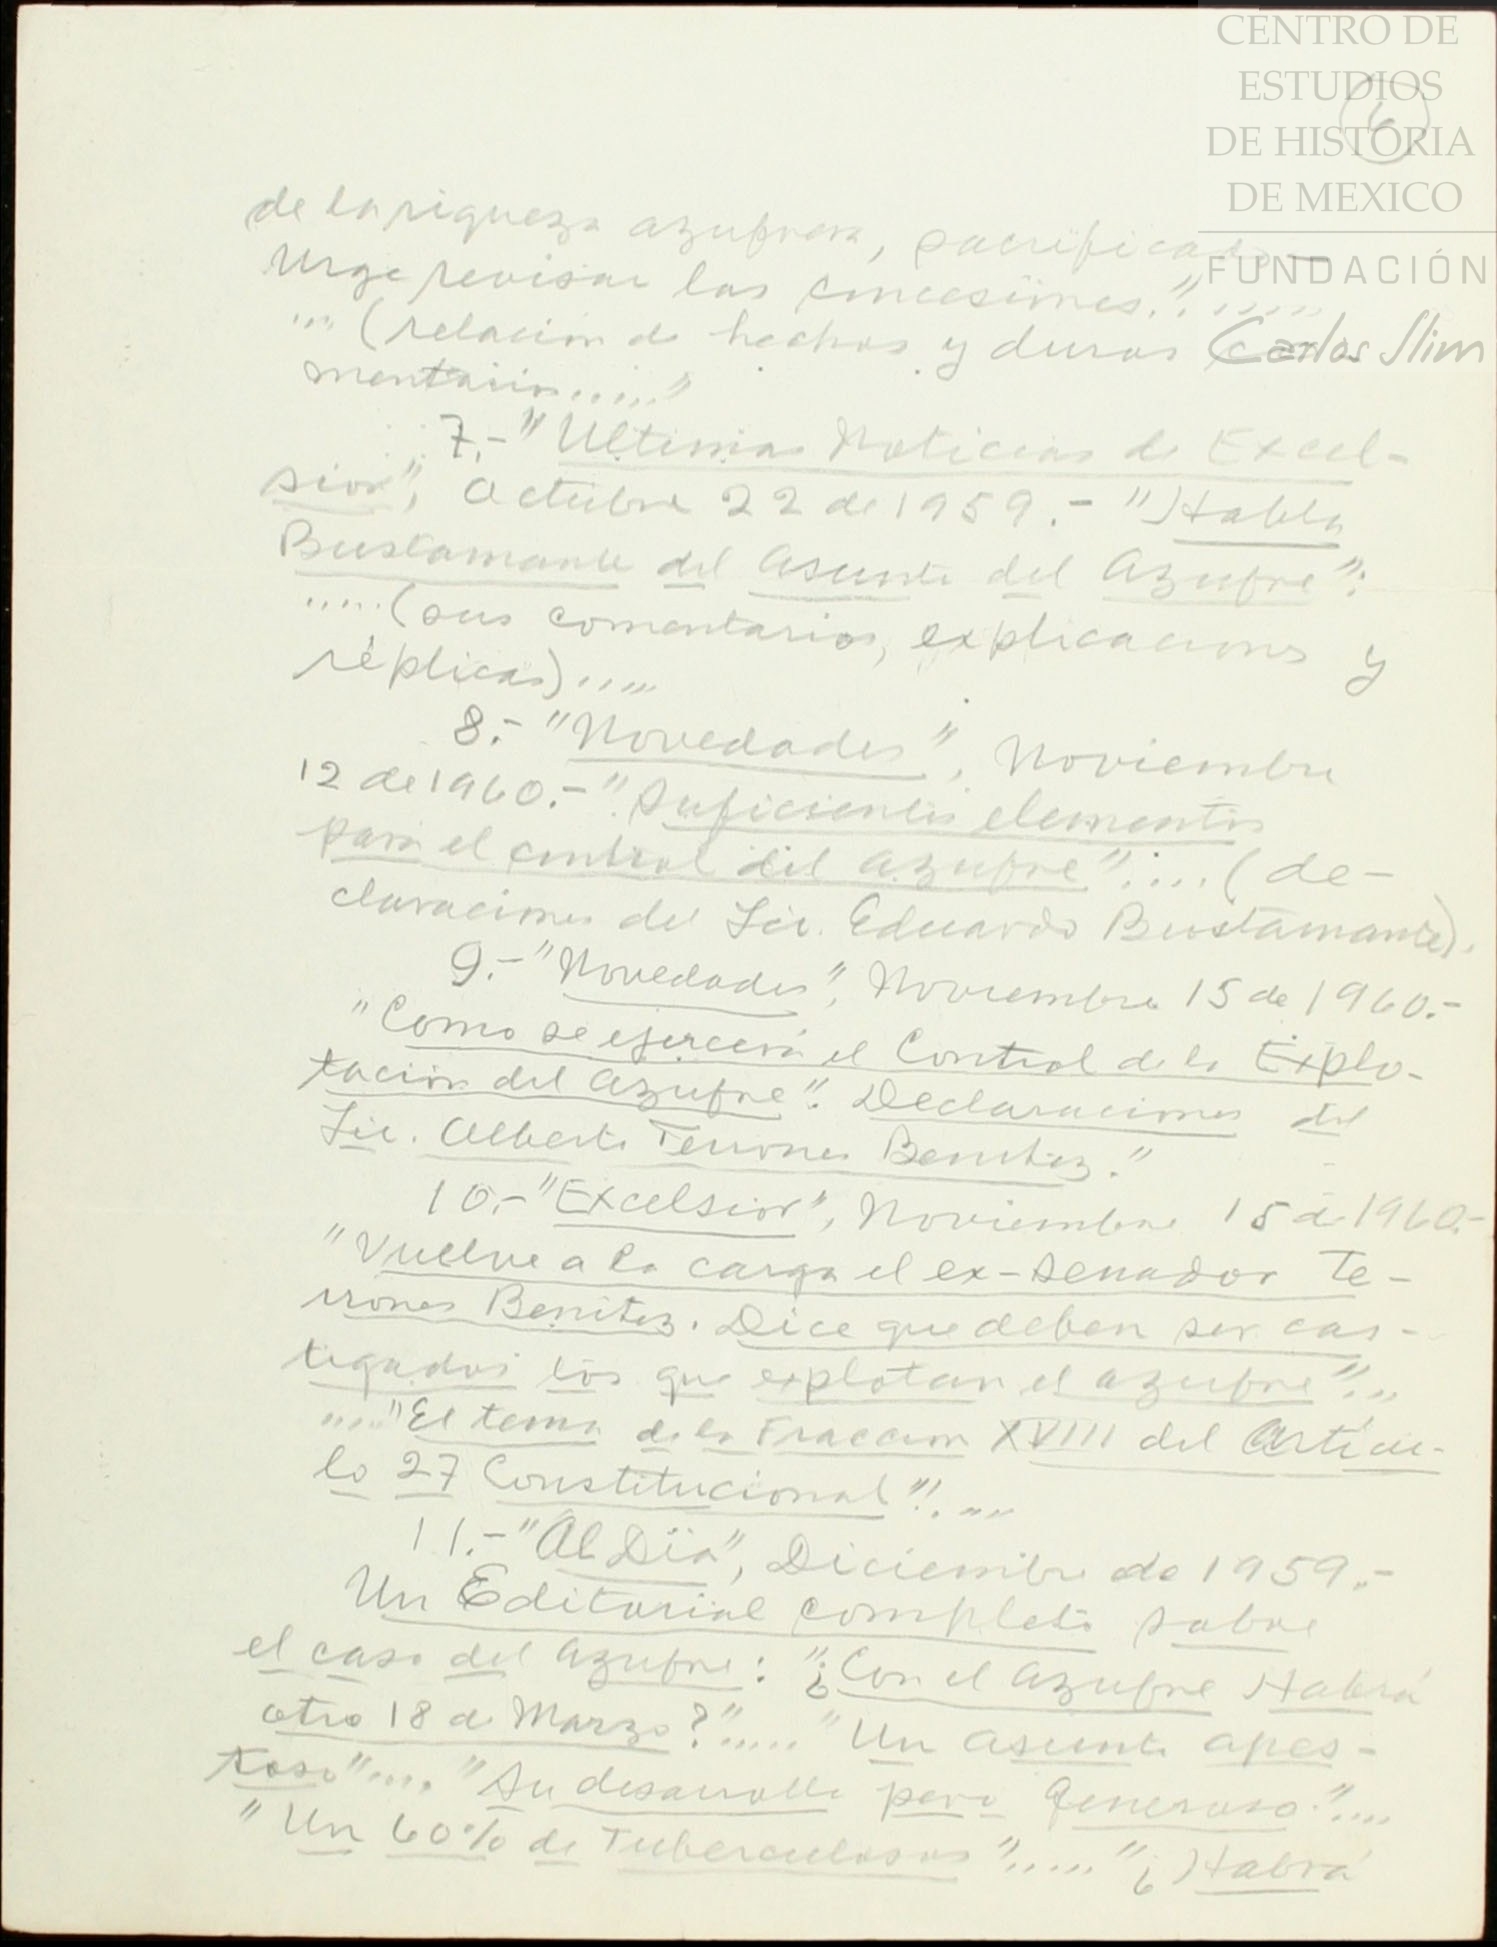 CENTRO DE
ESTUDIOS
DE HISTORIA
DE MEXICO
FUNDACIÓN
Carlos Slim
6
de la riqueza azufrera, sacrificada.—
Urge revisar las concesiones.".....
... (relación de hechos y duros co-
mentarios....."
7.- "Ultimas Noticias de Excel-
sior", Octubre 22 de 1959.- "Habla
Bustamante del Asunto del Azufre":
.....(sus comentarios, explicaciones y
réplicas).....
8.- "Novedades", Noviembre
12 de 1960.- "Suficientes elementos
para el control del azufre":...(de-
claraciones del Lic. Eduardo Bustamante).
9.- "Novedades", Noviembre 15 de 1960.-
"Como se ejercerá el Control de la Explo-
tación del Azufre". Declaraciones del
Lic. Alberto Terrones Benitez."
10.- "Excelsior", Noviembre 15 de 1960.-
"Vuelve a la carga el ex-senador Te-
rrones Benitez. Dice que deben ser cas-
tigados los que explotan el azufre"...
...."El tema de la Fraccion XVIII del Artícu-
lo 27 Constitucional"....
11.- "Al Día", Diciembre de 1959.-
Un Editorial completo sobre
el caso del Azufre: "¿Con el Azufre Habrá
otro 18 de Marzo?"....."Un asunto apes-
toso"...."Su desarrollo pero Generoso"....
"Un 60% de Tuberculosos"....."¿Habrá